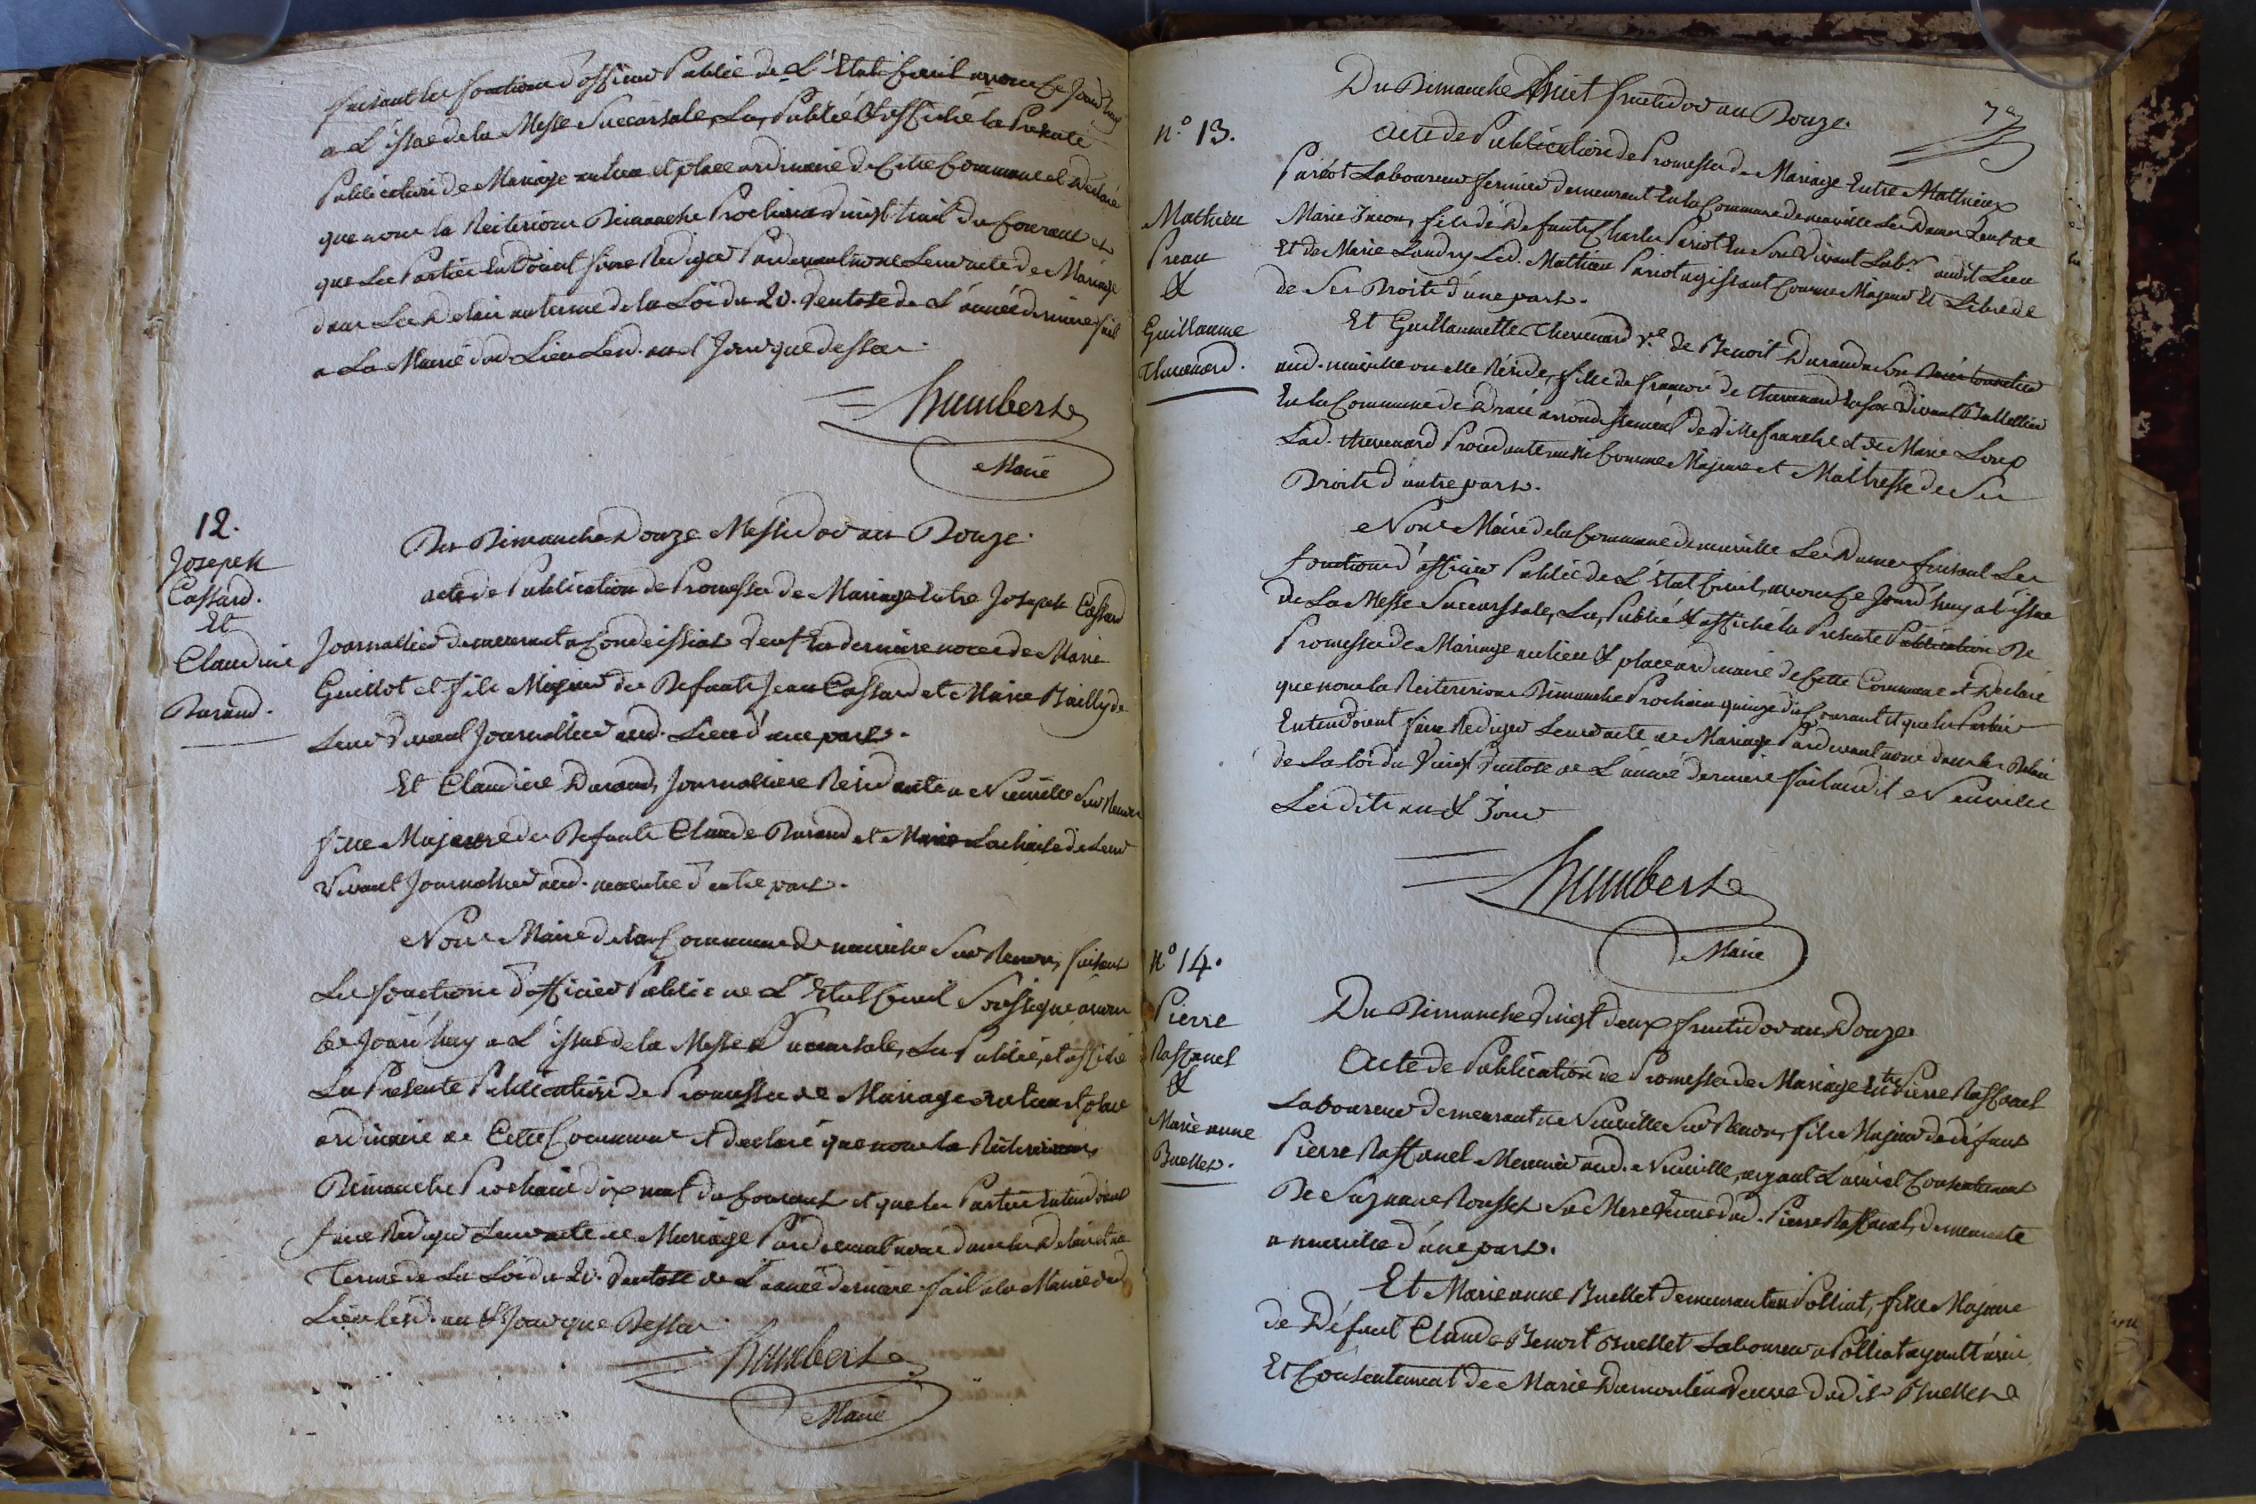 faisant les fonctions d'officier Public de L'Etat Civil avons Ce Jourd'huy
a L'issue de la Messe Succursale, Lu, Publié & affiché la Presente
Publication de Mariage au lieu et place ordinaire de Cette Commune et Declaré
que nous la Reitererions Dimanche Prochain vingt huit du Courant et
que Les Parties Entendoient faire Rediger Pardevant nous Leur acte de Mariage
dans Les Delais au terme de la Loi du 20. Ventose de L'année derniere fait
a La Mairie dud. Lieu Lesd. an et Jour que dessus.
humbert
Maire
12.
Joseph
Cassard.
Et
Claudine
Durand.
Du Dimanche Douze Messidor an Douze.
acte de Publication de Promesses de Mariage Entre Joseph Cassard
Journallier demeurant a Condeissiat veuf En derniere noces de Marie
Guillot et fils Majeur des Defunts Jean Cassard et Marie Bailly de
Leur vivant Journallier aud. Lieu d'une part.
Et Claudine Durand, Journalliere Residante a Neuville Sur Renon
fille Majeure des Defunts Claude Durand et Marie Lachaise de Leur
vivant Journallier aud. neuville d'autre part.
Nous Maire de la Commune de neuville Sur Renon, faisant
Les fonctions d'officier Public de L'Etat Civil Soussigné avons
Ce Jourd'huy a L'issue de la Messe Succursale, Lu, Publié, et affiché
La Presente Publication de Promesses de Mariage au lieu et place
ordinaire de Cette Commune et declaré que nous la Reitererions
Dimanche Prochain dix neuf du Courant et que les Parties Entendoient
faire Rediger Leur acte de Mariage Pardevant nous dans les Delais et au
Terme de La Loi du 20. Ventose de L'année derniere fait a la Mairie dud.
Lieu Lesd. an & Jour que Dessus
humbert
Maire
7
Du Dimanche huit fructidor an Douze.
n.° 13.
Mathieu
&
Guillaume
Thevenard.
Acte de Publication de Promesses de Mariage Entre Mathieux
Pariot Laboureur fermier demeurant En la Commune de neuville Les Dames veuf de
Marie fils de Defunt Charles Pariot En Son Vivant Lab.r audit Lieu
Et de Marie Landry Led. Mathieu Pariot agissant Comme Majeur Et Libre de
de Ses Droits d'une part.
Et Guillaumette Thevenard v.e de Benoit Durand
aud. neuville ou elle Réside, fille de françois de thevenard En Son Vivant
En la Commune de Dracé arrondissement de Villefranche et de Marie Loup
Lad. thevenard Procedante aussi Comme Majeure et Maitresse de Ses
Droits d'autre part.
Nous Maire de la Commune de neuville Les Dames faisant Les
fonctions d'officier Public de L'Etat Civil, avons Ce Jourd'huy a l'issue
de La Messe Succursale, Lu, Publié & affiché la Presente Publication De
Promesses de Mariage au lieu & place ordinaire de Cette Commune et Declaré
que nous la Reitererions Dimanche Prochain quinze du Courant et que les Parties
Entendoient faire Rediger Leur acte de Mariage Pardevant nous dans les Delais
de La Loi du vingt Ventose de L'année derniere fait audit Neuville
Les dits an & Jour
humbert
Maire
n.° 14.
Pierre
Raffanel
&
Marie anne
Buellet.
Du Dimanche Vingt deux fructidor an Douze
Acte de Publication de Promesses de Mariage Entre Pierre Raffanel
Laboureur demeurant a Neuville Sur Renon, fils Majeur de défunt
Pierre Raffanel Meunier aud. Neuville, ayant L'avis et Consentement
De Suzanne Rousset Sa Mere Veuve dud. Pierre Raffanel, demeurante
a neuville d'une part.
Et Marie anne Buellet demeurante a Polliat, fille Majeure
de Défunt Claude Benoit Buellet Laboureur a Polliat ayant l'avis
Et Consentement de Marie Dumoulin Veuve dudit Buellet